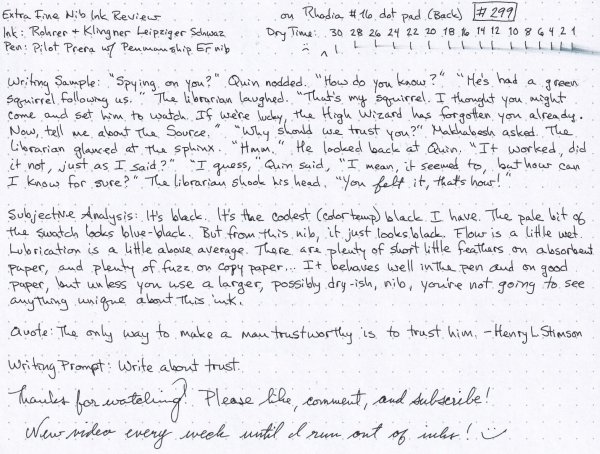 Extra Fine Nib Ink Review on Rhodia #16 dot pad (Back) #299
Ink: Rohrer + Klingner Leipziger Schwaz Dry Time: 30 28 26 24 22 20 18 16 14 12 10 8 6 4 2 1
Pen: Pilot Prera w/ Penmanship EF nib
Writing Sample: "Spying on you?" Quin nodded. "How do you know?" "He's had a green
squirrel following us." The librarian laughed. "That's my squirrel. I thought you might
come and set him to watch. If we're lucky, the High Wizard has forgotten you already.
Now, tell me about the Source." "Why should we trust you?" Makhabesh asked. The
librarian glanced at the sphinx. "Hmm." He looked back at Quin. "It worked, did
it not, just as I said?" "I guess," Quin said, "I mean, it seemed to, but how can
I know for sure?" The librarian shook his head. "You felt it, that's how!"
Subjective Analysis: It's black. It's the coolest (color temp) black I have. The pale bit of
the swatch looks blue-black. But from this nib, it just looks black. Flow is a little wet.
Lubrication is a little above average. There are plenty of short little feathers on absorbent
paper, and plenty of fuzz on copy paper... It behaves well in the pen and on good
paper, but unless you use a larger, possibly dry-ish, nib, you're not going to see
anything unique about this ink.
Quote: The only way to make a man trustworthy is to trust him. -Henry L. Stimson
Writing Prompt: Write about trust.
Thanks for watching! Please like, comment, and subscribe!
New video every week until I run out of inks!